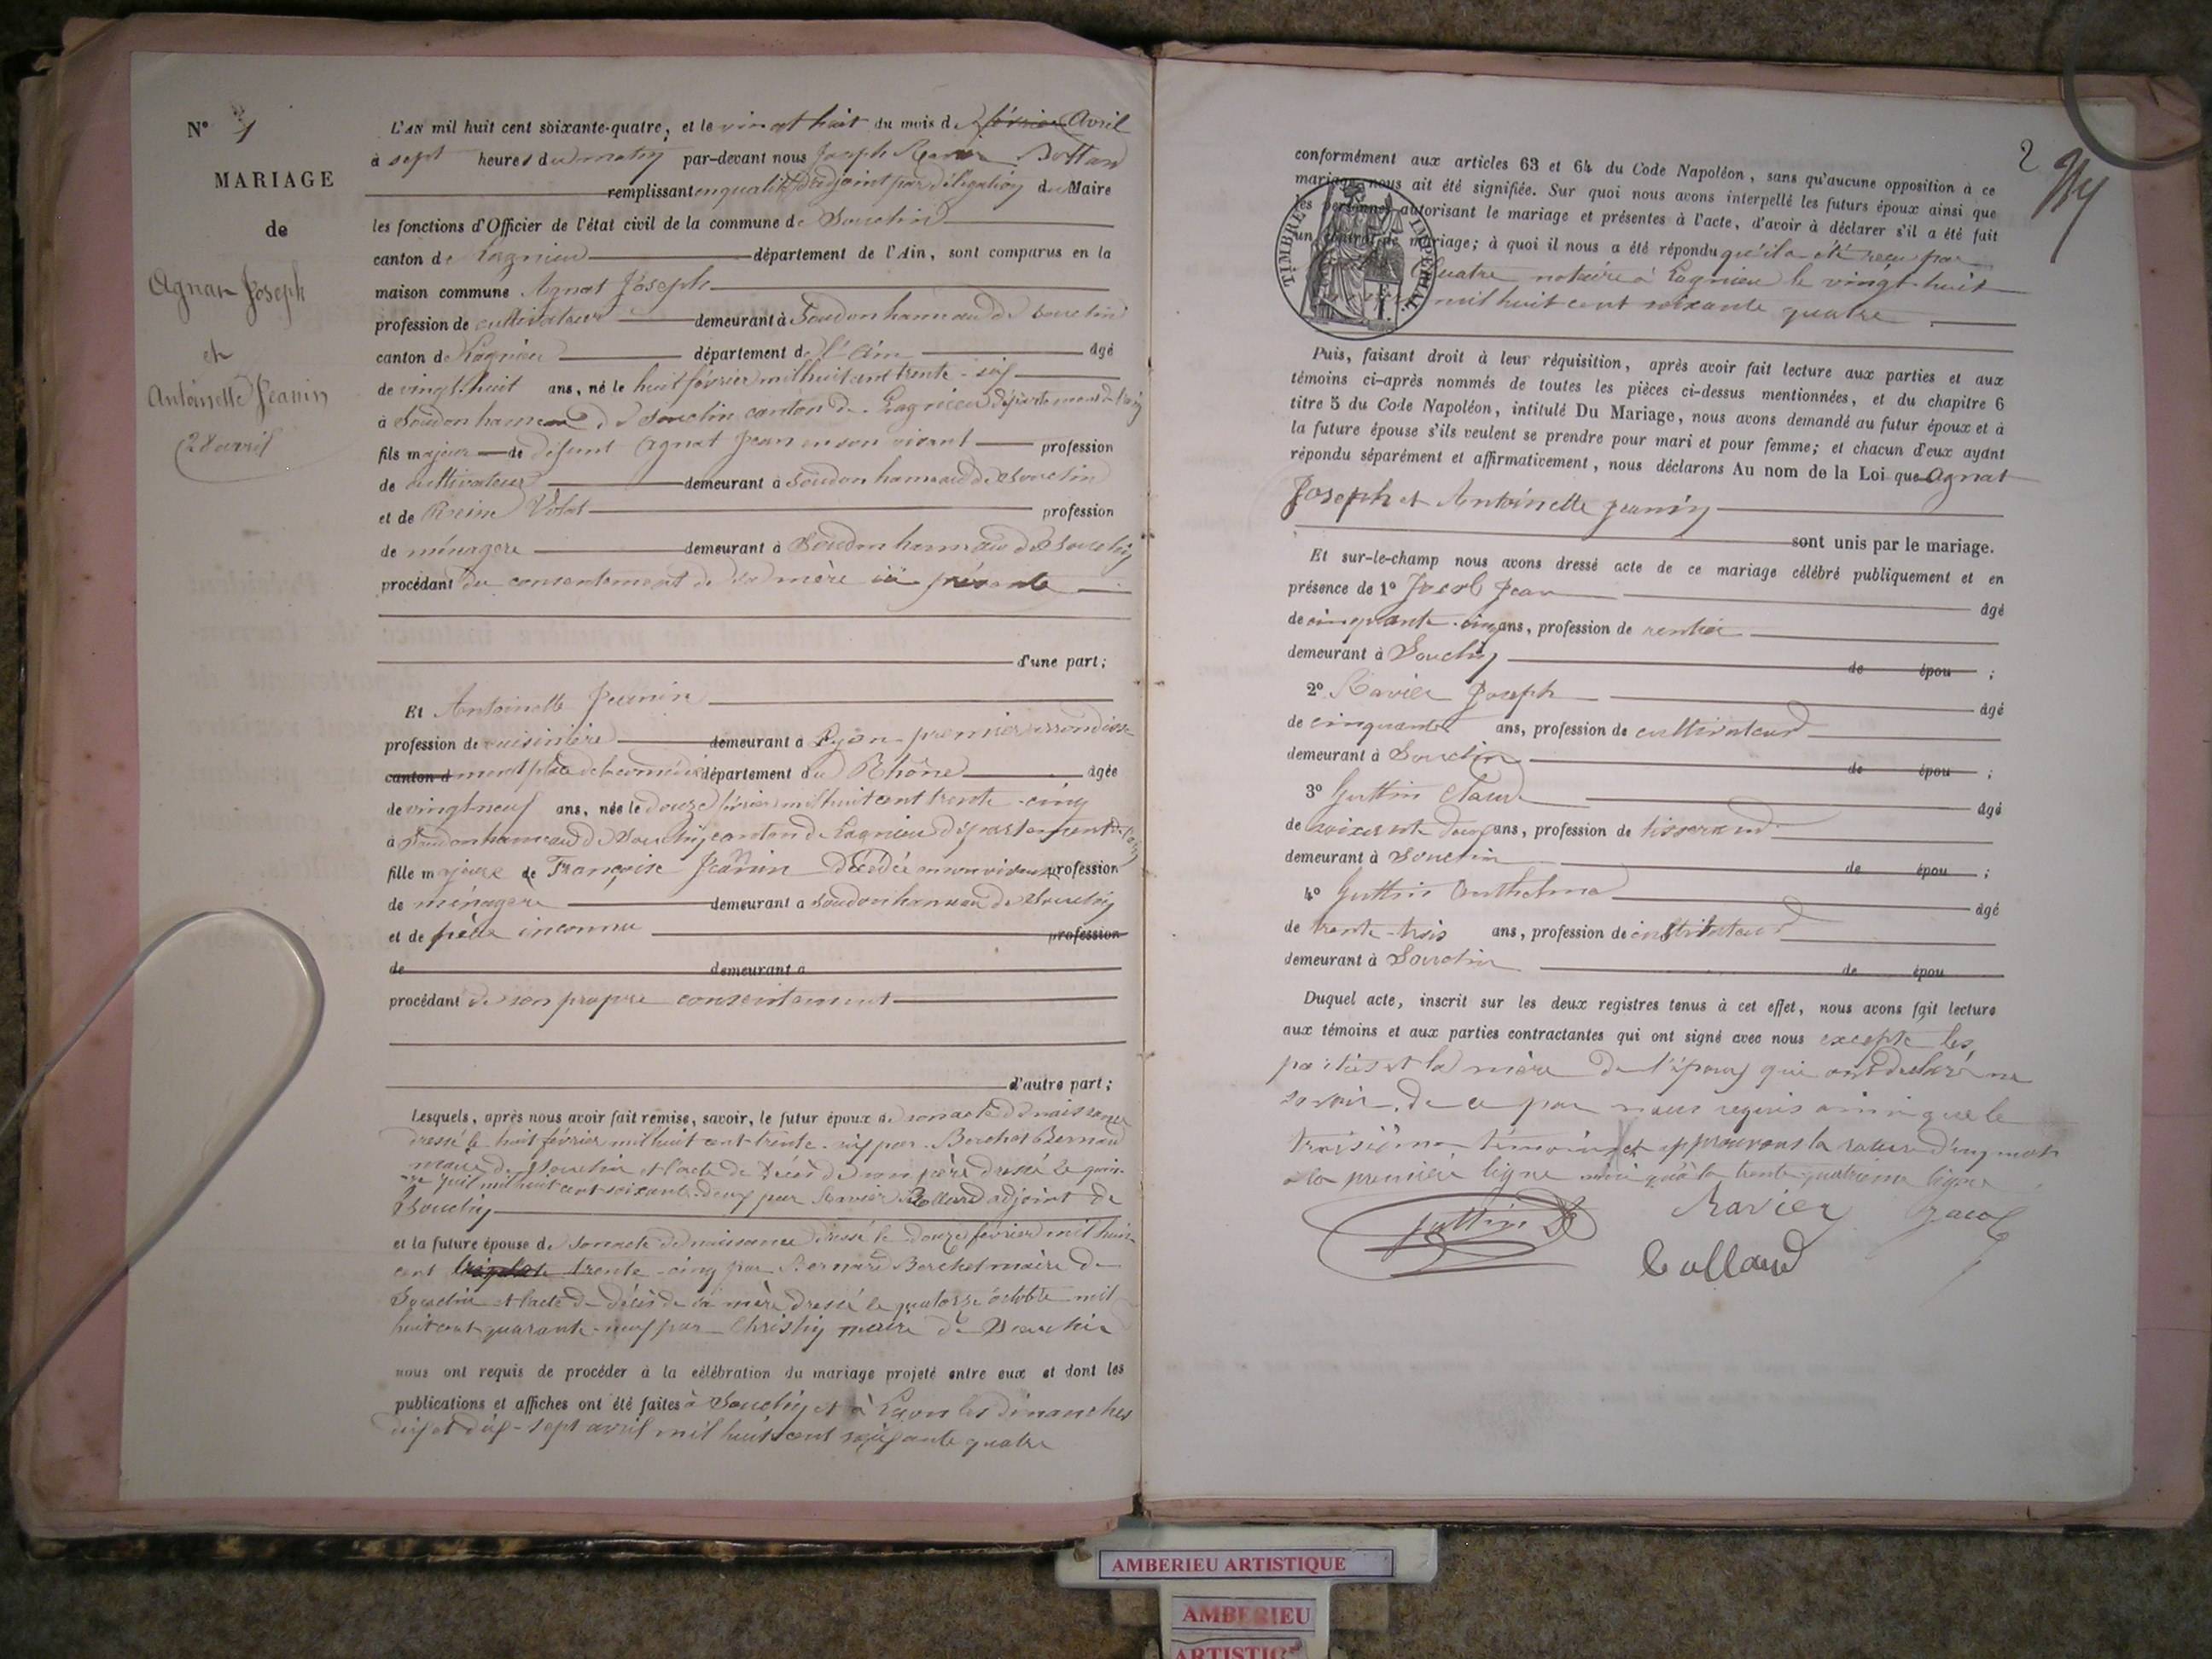 N° 1
MARIAGE
de
Agnat Joseph
et
Antoinette Jeanin
28 avril
L'AN mil huit cent soixante-quatre, et le vingt huit du mois de février Avril
à sept heures du matin par-devant nous Joseph
remplissant en qualité d'adjoint par délégation du Maire
les fonctions d'Officier de l'état civil de la commune de Souclin
canton de Lagnieu département de l'Ain, sont comparus en la
maison commune Agnat Joseph
profession de cultivateur demeurant à Soudon hameau de Souclin
canton de Lagnieu département de l'Ain âgé
de vingt-huit ans, né le huit février mil huit cent trente-six
à Soudon hameau de Souclin canton de Lagnieu département de l'Ain
fils majeur de défunt Agnat Jean en son vivant profession
de cultivateur demeurant à Soudon hameau de Souclin
et de Reine Volat profession
de ménagère demeurant à Soudon hameau de Souclin
procédant du consentement de sa mère ici présente
d'une part;
Et Antoinette Jeanin
profession de cuisinière demeurant à Lyon premier arrondisse-
canton d ment place de la comédie département du Rhône âgée
de vingt neuf ans, née le douze février mil huit cent trente-cinq
à Soudon hameau de Souclin canton de Lagnieu département de l'Ain
fille majeure de Françoise Jeanin décédée en son vivant profession
de ménagère demeurant à Soudon hameau de Souclin
et de père inconnu profession
de demeurant à
procédant de son propre consentement
d'autre part;
Lesquels, après nous avoir fait remise, savoir, le futur époux de son acte de naissance
dressé le huit février mil huit cent trente-six par Berchet Bernard
maire de Souclin et l'acte de décès de son père dressé le quin-
mil huit cent soixante-deux par Ravier adjoint de
Souclin
et la future épouse de son acte de naissance dressé le douze février mil huit
cent trente-cinq par Bernard Berchet maire de
Souclin et l'acte de décès de sa mère dressé le quatorze octobre mil
huit cent quarante-neuf par Christin maire de Souclin
nous ont requis de procéder à la célébration du mariage projeté entre eux et dont les
publications et affiches ont été faites à Souclin et à Lyon les dimanches
dix et dix-sept avril mil huit cent soixante quatre
2
conformément aux articles 63 et 64 du Code Napoléon, sans qu'aucune opposition à ce
mariage nous ait été signifiée. Sur quoi nous avons interpellé les futurs époux ainsi que
les personnes autorisant le mariage et présentes à l'acte, d'avoir à déclarer s'il a été fait
un contrat de mariage; à quoi il nous a été répondu qu'il a été reçu par
notaire à Lagnieu le vingt-huit
mil huit cent soixante quatre
TIMBRE IMPÉRIAL
Puis, faisant droit à leur réquisition, après avoir fait lecture aux parties et aux
témoins ci-après nommés de toutes les pièces ci-dessus mentionnées, et du chapitre 6
titre 5 du Code Napoléon, intitulé Du Mariage, nous avons demandé au futur époux et à
la future épouse s'ils veulent se prendre pour mari et pour femme; et chacun d'eux ayant
répondu séparément et affirmativement, nous déclarons Au nom de la Loi que Agnat
Joseph et Antoinette Jeanin
sont unis par le mariage.
Et sur-le-champ nous avons dressé acte de ce mariage célébré publiquement et en
présence de 1° Jacob Jean âgé
de cinquante-cinq ans, profession de rentier
demeurant à Souclin de épou ;
2° Ravier Joseph âgé
de cinquante ans, profession de cultivateur
demeurant à Souclin de épou ;
3° Guttin Claude âgé
de soixante deux ans, profession de tisserand
demeurant à Souclin de épou ;
4° Guttin Anthelme âgé
de trente-trois ans, profession de instituteur
demeurant à Souclin de épou
Duquel acte, inscrit sur les deux registres tenus à cet effet, nous avons fait lecture
aux témoins et aux parties contractantes qui ont signé avec nous excepté les
parties et la mère de l'époux qui ont déclaré ne
savoir, de ce par nous requis ainsi que le
troisième témoin et approuvons la rature d'un mot
à la première ligne ainsi qu'à la trente-quatrième ligne
Guttin Ravier Jacob
Bolland
AMBERIEU ARTISTIQUE
AMBERIEU